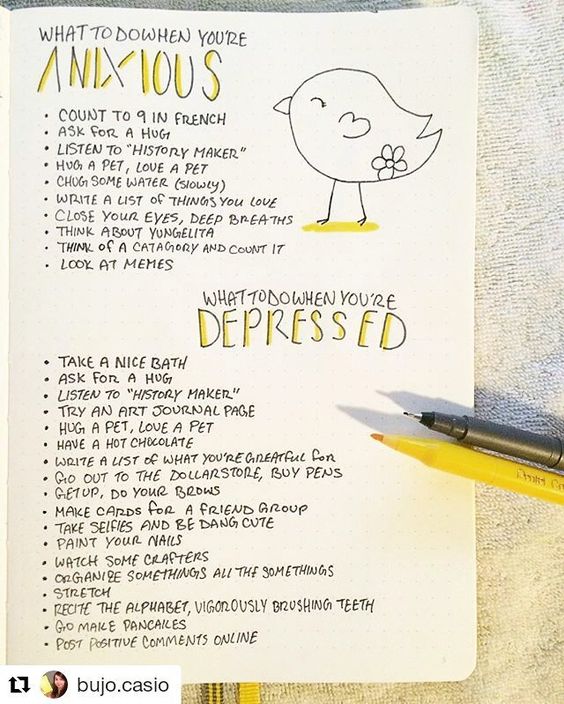 WHAT TO DO WHEN YOU'RE
ANXIOUS
• COUNT TO 9 IN FRENCH
• ASK FOR A HUG
• LISTEN TO "HISTORY MAKER"
• HUG A PET, LOVE A PET
• CHUG SOME WATER (SLOWLY)
• WRITE A LIST OF THINGS YOU LOVE
• CLOSE YOUR EYES, DEEP BREATHS
• THINK ABOUT YUNGELITA
• THINK OF A CATAGORY AND COUNT IT
• LOOK AT MEMES
WHAT TO DO WHEN YOU'RE
DEPRESSED
• TAKE A NICE BATH
• ASK FOR A HUG
• LISTEN TO "HISTORY MAKER"
• TRY AN ART JOURNAL PAGE
• HUG A PET, LOVE A PET
• HAVE A HOT CHOCOLATE
• WRITE A LIST OF WHAT YOU'RE GREATFUL FOR
• GO OUT TO THE DOLLARSTORE, BUY PENS
• GET UP, DO YOUR BROWS
• MAKE CARDS FOR A FRIEND GROUP
• TAKE SELFIES AND BE DANG CUTE
• PAINT YOUR NAILS
• WATCH SOME CRAFTERS
• ORGANIZE SOMETHINGS ALL THE SOMETHINGS
• STRETCH
• RECITE THE ALPHABET, VIGOROUSLY BRUSHING TEETH
• GO MAKE PANCAKES
• POST POSITIVE COMMENTS ONLINE
bujo.casio